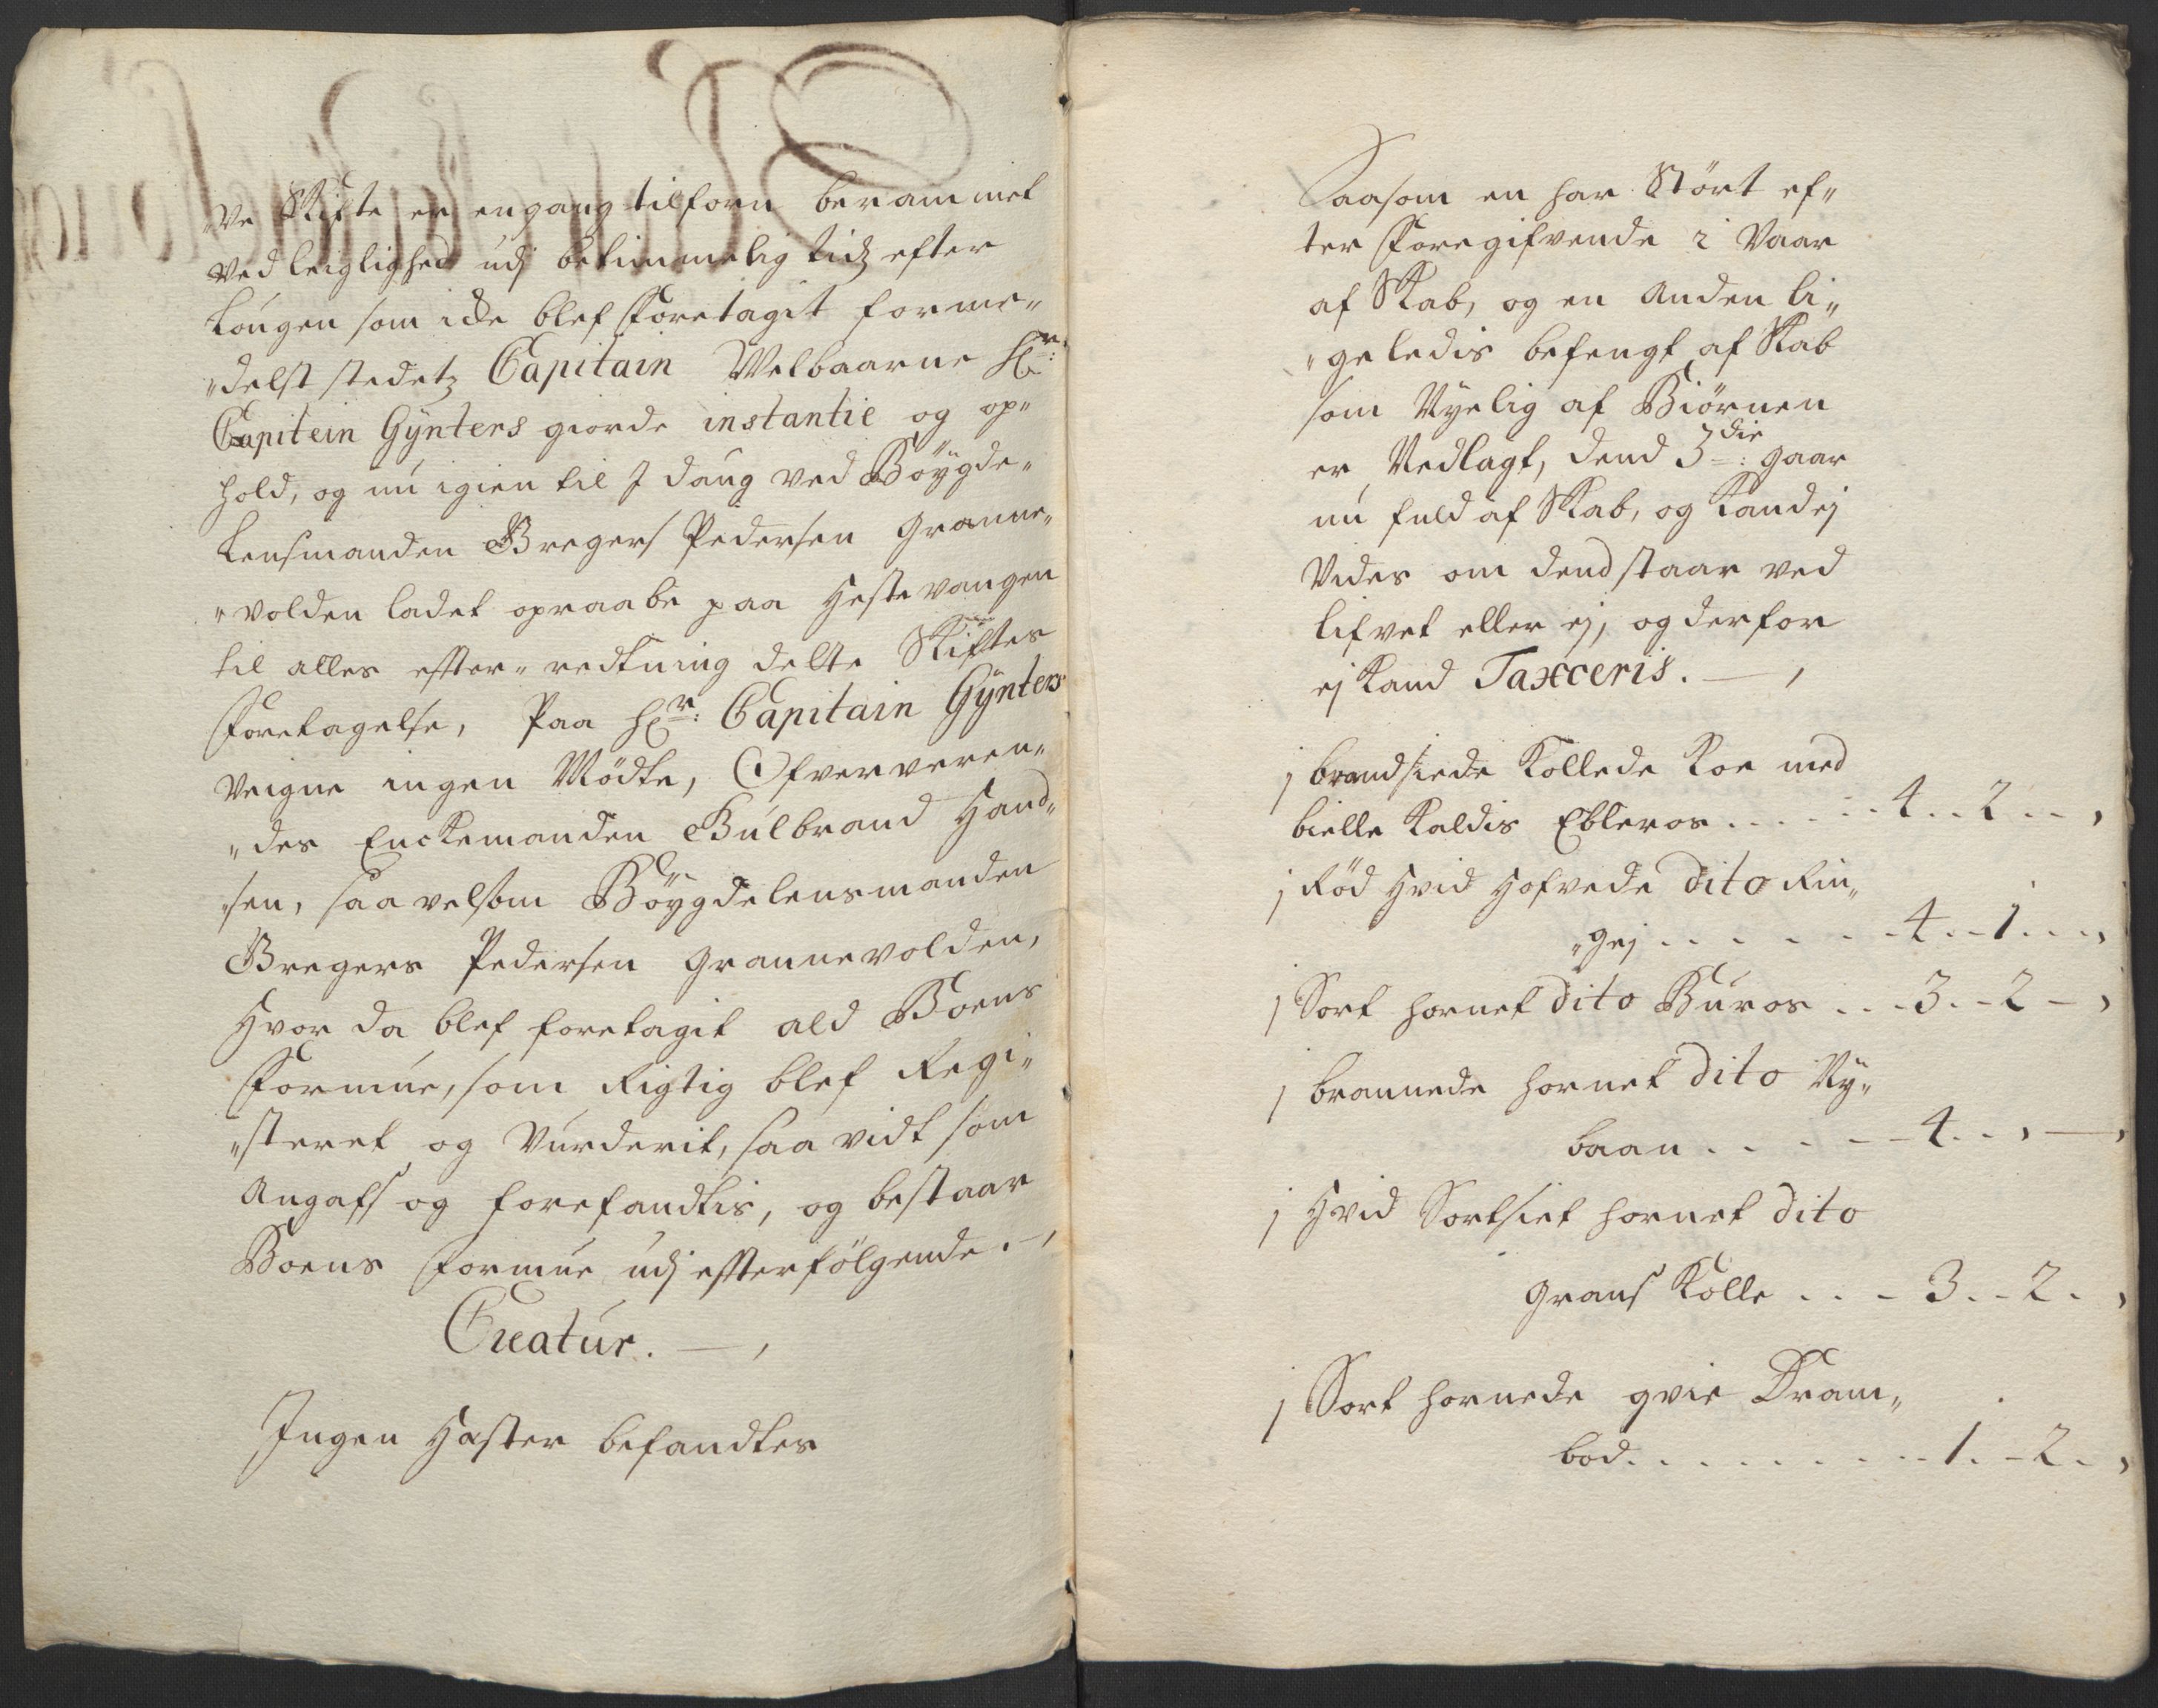 „ve Skifte er engang tilforn berammet
ved leiglighed udj beqvimmelig tid efter
Lougen som icke blef foretagit forme„
„delst stedetz Capitain Welbaarne Hr:
Capitein Gÿnters giorde instantie og op„
hold, og nú igien til I daug ved Böÿgde„
Lensmanden Bregers Pedersen Granne„
„volden ladet opraabe paa Hestevangen
til alles efter„redtning dette Skiftes
Foretagelse, Paa Hr: Capitain Gÿnters
Veigne ingen Mödte, Ofververen„
„des Enckemanden Gúlbrand Hand„
„sen, saavelsom Böÿgdelensmanden
Bregers Pedersen Grannevolden,
Hvor da blef foretagit ald Boens
Formúe, som Rigtig blef Regi„
„steret og Vurderit, saavidt som
Angafs og forefandtis, og bestaar
Boens formúe udj efterfölgende.—,
Creatúr.—,
Ingen Hæster befandtes
Saasom en har Stört ef„
ter Foregifvende i Vaar
af Skab, og en Anden li„
„geledis befengt af Skab
som Nyelig af Biörnen
er Nedlagt, dend 3die: gaar
nú fuld af Skab, og Kand ej
Vides om dend staar ved
lifvet eller ej, og derfor
ej Kand Taxceris.—,
1 brandsiede Kollede Koe med
bielle Kaldis Ebleros . . . . . 4 . . 2 . . ,
1 Röd Hvid Hofvede dito Rin„
„gej . . . . . 4 . . 1 . . . ,
1 Sort hornet dito Búros . . . 3 . . 2 – ,
1 brannede hornet dito Ny„
baan . . . . . 4 . . , — ,
1 Hvid Sortsiet hornet dito
Grans Kolle . . . 3 . . 2 . ,
1 Sort hornede qvie Dram„
bod . . . . . . . . 1 . – 2 . ,